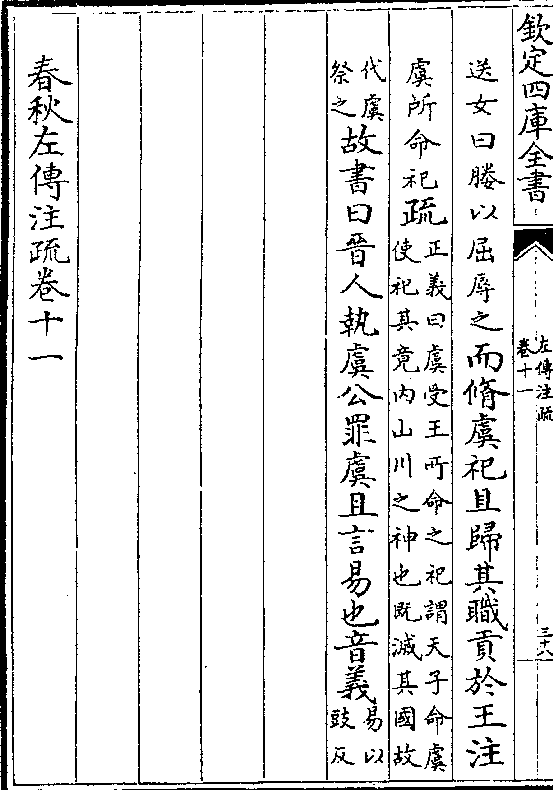 欽定四庫全書
左傳注疏
卷十一
三十八
送女曰媵以屈辱之而脩虞祀且歸其職貢於王注
虞所命祀疏
正義曰虞受王所命之祀謂天子命虞
使祀其竟內山川之神也既滅其國故
代虞
祭之
故書曰晉人執虞公罪虞且言易也音義
易以
豉反
春秋左傳注疏卷十一